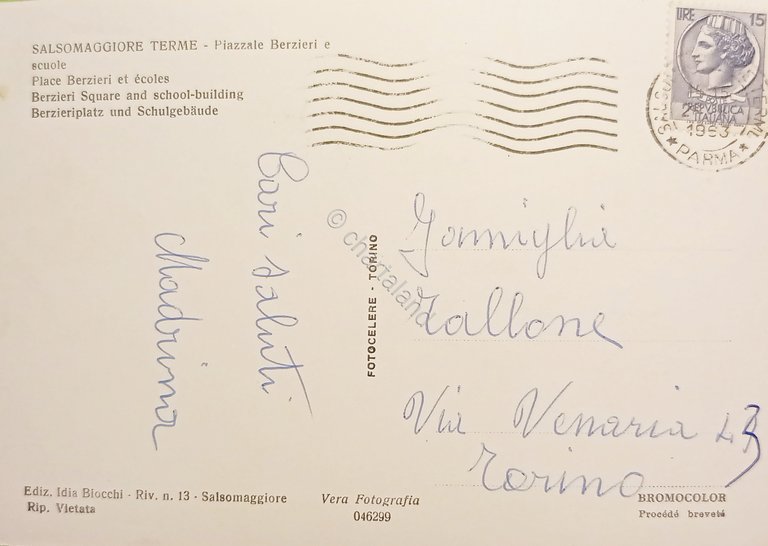 SALSOMAGGIORE TERME - Piazzale Berzieri e
scuole
Place Berzieri et écoles
Berzieri Square and school-building
Berzieriplatz und Schulgebäude
LIRE 15
REPVBBLICA
ITALIANA
1963
* PARMA *
Cari saluti
Madrina
© chartaland
FOTOCELERE - TORINO
Famiglia
Tallone
Via Venaria 43
Torino
Ediz. Idia Biocchi - Riv. n. 13 - Salsomaggiore
Rip. Vietata
Vera Fotografia
046299
BROMOCOLOR
Procédé breveté